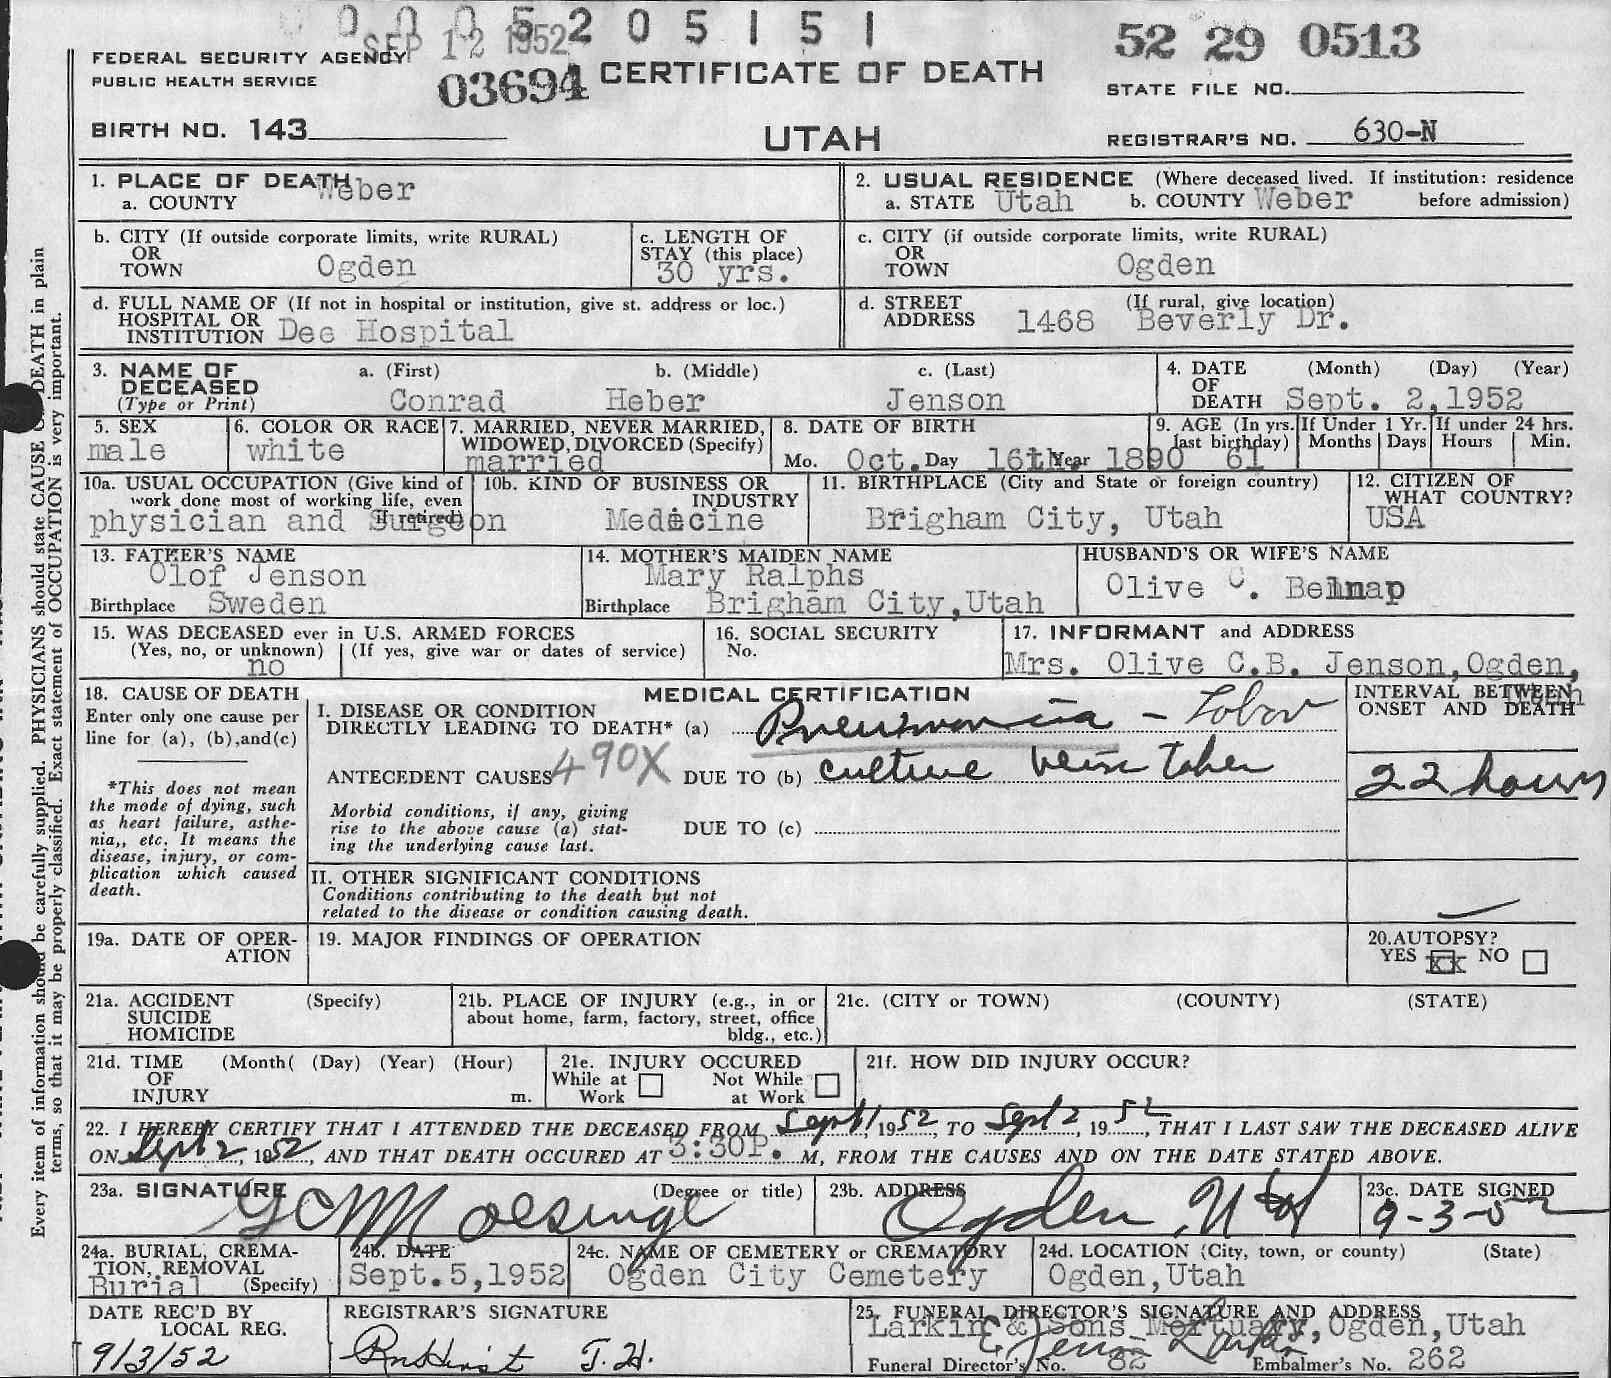 0 0 0 5 2 0 5 1 5 1
SEP 12 1952
52 29 0513
FEDERAL SECURITY AGENCY
PUBLIC HEALTH SERVICE
03694
CERTIFICATE OF DEATH
STATE FILE NO.
BIRTH NO. 143
UTAH
REGISTRAR'S NO. 630-N
1. PLACE OF DEATH
a. COUNTY Weber
2. USUAL RESIDENCE (Where deceased lived. If institution: residence
a. STATE Utah b. COUNTY Weber before admission)
b. CITY (If outside corporate limits, write RURAL)
OR
TOWN Ogden
c. LENGTH OF
STAY (this place)
30 yrs.
c. CITY (if outside corporate limits, write RURAL)
OR
TOWN Ogden
d. FULL NAME OF (If not in hospital or institution, give st. address or loc.)
HOSPITAL OR
INSTITUTION Dee Hospital
d. STREET (If rural, give location)
ADDRESS 1468 Beverly Dr.
3. NAME OF a. (First) b. (Middle) c. (Last)
DECEASED
(Type or Print) Conrad Heber Jenson
4. DATE (Month) (Day) (Year)
OF
DEATH Sept. 2,1952
5. SEX
male
6. COLOR OR RACE
white
7. MARRIED, NEVER MARRIED,
WIDOWED, DIVORCED (Specify)
married
8. DATE OF BIRTH
Mo. Oct. Day 16th, Year 1890
9. AGE (In yrs.
last birthday)
61
If Under 1 Yr.
Months Days
If under 24 hrs.
Hours Min.
10a. USUAL OCCUPATION (Give kind of
work done most of working life, even
if retired)
physician and Surgeon
10b. KIND OF BUSINESS OR
INDUSTRY
Medicine
11. BIRTHPLACE (City and State or foreign country)
Brigham City, Utah
12. CITIZEN OF
WHAT COUNTRY?
USA
13. FATHER'S NAME
Olof Jenson
Birthplace Sweden
14. MOTHER'S MAIDEN NAME
Mary Ralphs
Birthplace Brigham City,Utah
HUSBAND'S OR WIFE'S NAME
Olive C. Belnap
15. WAS DECEASED ever in U.S. ARMED FORCES
(Yes, no, or unknown) (If yes, give war or dates of service)
no
16. SOCIAL SECURITY
No.
17. INFORMANT and ADDRESS
Mrs. Olive C.B. Jenson,Ogden,
Utah
18. CAUSE OF DEATH
Enter only one cause per
line for (a), (b),and(c)
*This does not mean
the mode of dying, such
as heart failure, asthe-
nia,, etc. It means the
disease, injury, or com-
plication which caused
death.
MEDICAL CERTIFICATION
I. DISEASE OR CONDITION
DIRECTLY LEADING TO DEATH* (a) Pneumonia - Lobar
ANTECEDENT CAUSES 490X DUE TO (b) culture being taken
Morbid conditions, if any, giving
rise to the above cause (a) stat-
ing the underlying cause last.
DUE TO (c)
INTERVAL BETWEEN
ONSET AND DEATH
22 hours
II. OTHER SIGNIFICANT CONDITIONS
Conditions contributing to the death but not
related to the disease or condition causing death.
19a. DATE OF OPER-
ATION
19. MAJOR FINDINGS OF OPERATION
20.AUTOPSY?
YES XX NO
21a. ACCIDENT (Specify)
SUICIDE
HOMICIDE
21b. PLACE OF INJURY (e.g., in or
about home, farm, factory, street, office
bldg., etc.)
21c. (CITY or TOWN) (COUNTY) (STATE)
21d. TIME (Month( (Day) (Year) (Hour)
OF
INJURY m.
21e. INJURY OCCURED
While at Not While
Work at Work
21f. HOW DID INJURY OCCUR?
22. I HEREBY CERTIFY THAT I ATTENDED THE DECEASED FROM Sept 1, 1952, TO Sept 2, 1952, THAT I LAST SAW THE DECEASED ALIVE
ON Sept 2, 1952, AND THAT DEATH OCCURED AT 3:30P. M, FROM THE CAUSES AND ON THE DATE STATED ABOVE.
23a. SIGNATURE (Degree or title)
23b. ADDRESS
Ogden, Utah
23c. DATE SIGNED
9-3-52
24a. BURIAL, CREMA-
TION, REMOVAL
Burial (Specify)
24b. DATE
Sept.5,1952
24c. NAME OF CEMETERY or CREMATORY
Ogden City Cemetery
24d. LOCATION (City, town, or county) (State)
Ogden,Utah
DATE REC'D BY
LOCAL REG.
9/3/52
REGISTRAR'S SIGNATURE
25. FUNERAL DIRECTOR'S SIGNATURE AND ADDRESS
Larkin & Sons Mortuary,Ogden,Utah
Funeral Director's No. 82 Embalmer's No. 262
Every item of information should be carefully supplied. PHYSICIANS should state CAUSE OF DEATH in plain
terms, so that it may be properly classified. Exact statement of OCCUPATION is very important.